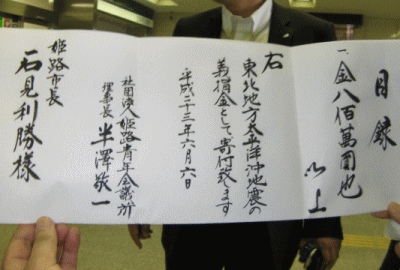 目録
一、金八佰萬円也
以上
右
東北地方太平洋沖地震の
義捐金として寄付致します
平成二十三年六月六日
社団法人姫路青年会議所
理事長 半澤敬一
姫路市長
石見利勝様